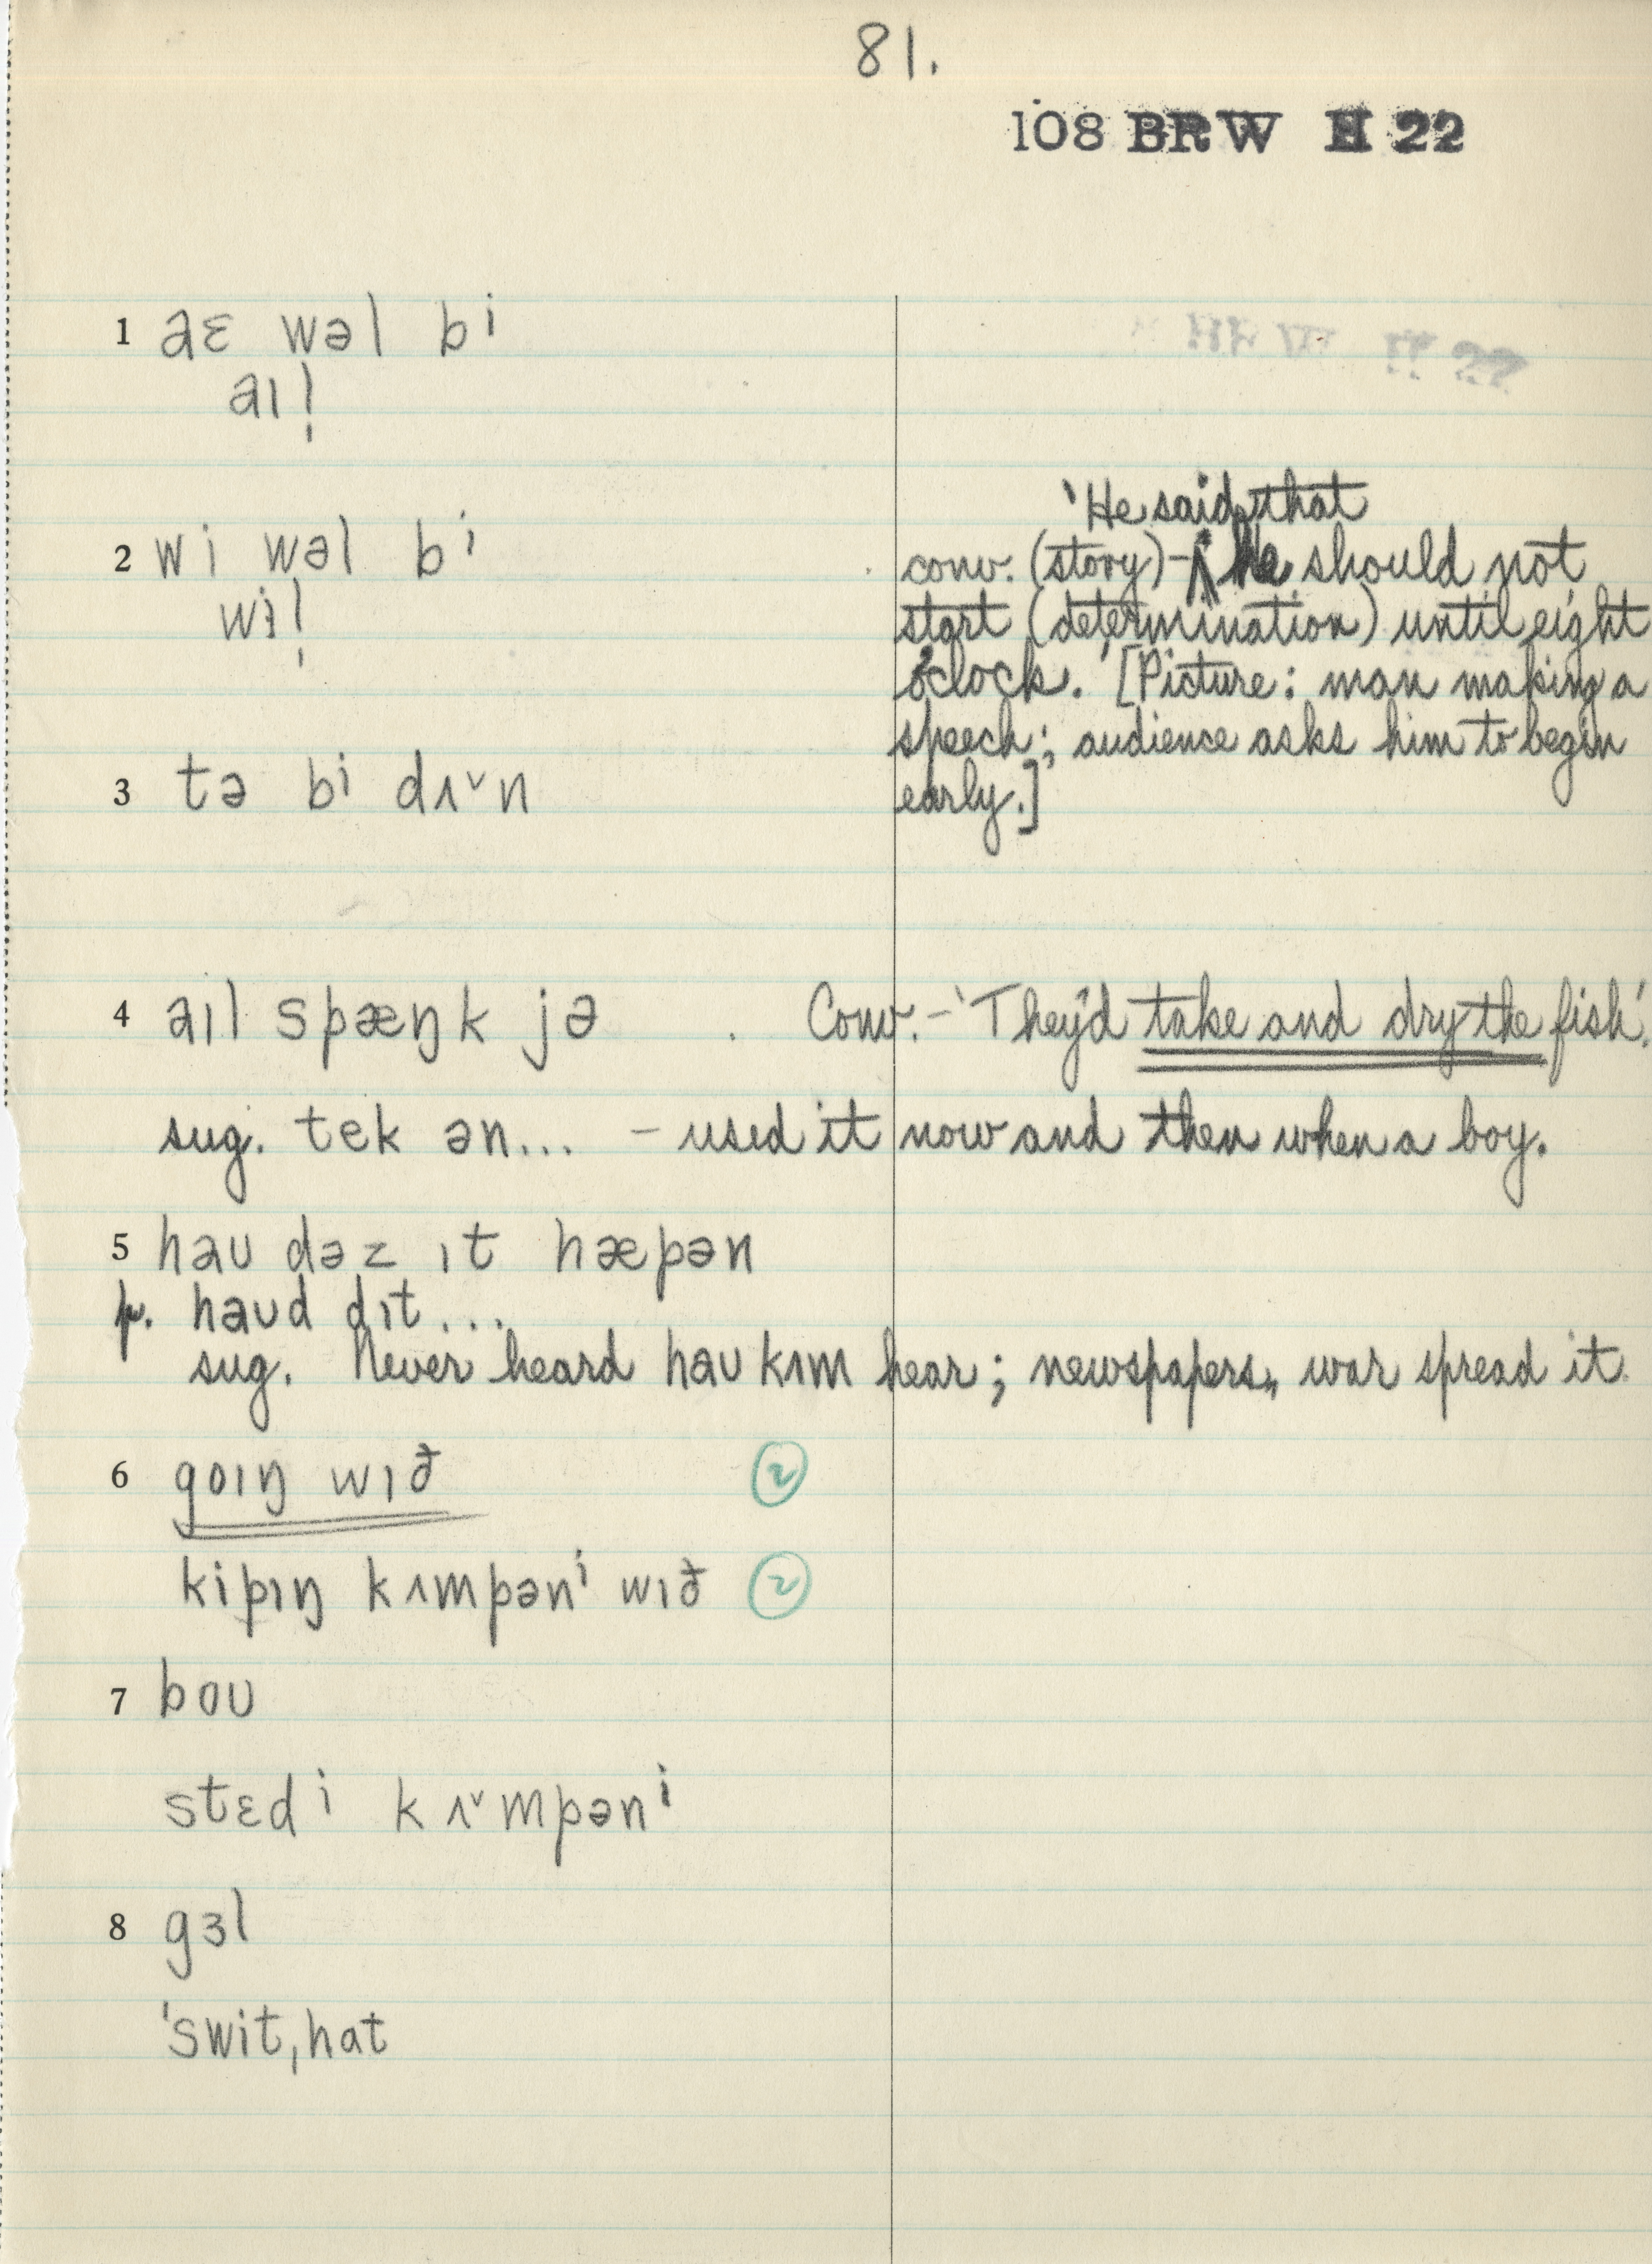 81.
108 BRW H 22
1 aɛ wəl bi
aɪl̩
2 wi wəl bi
wɨl̩
'He said, that
conv. (story) - he should not
start (determination) until eight
o'clock.' [Picture: man making a
speech; audience asks him to begin
early.]
3 tə bi dʌ˅n
4 aɪl spæŋk jə Conv. - 'They'd take and dry the fish'.
sug. tek ən... - used it now and then when a boy.
5 haʊ dəz ɪt hæpən
p. haʊd dɪt...
sug. Never heard haʊ kʌm hear; newspapers, war spread it.
6 goɪŋ wɪð 2
kipɪŋ kʌmpəni wɪð 2
7 boʊ
stɛdi kʌ˅mpəni
8 gɜl
ˈswitˌhat